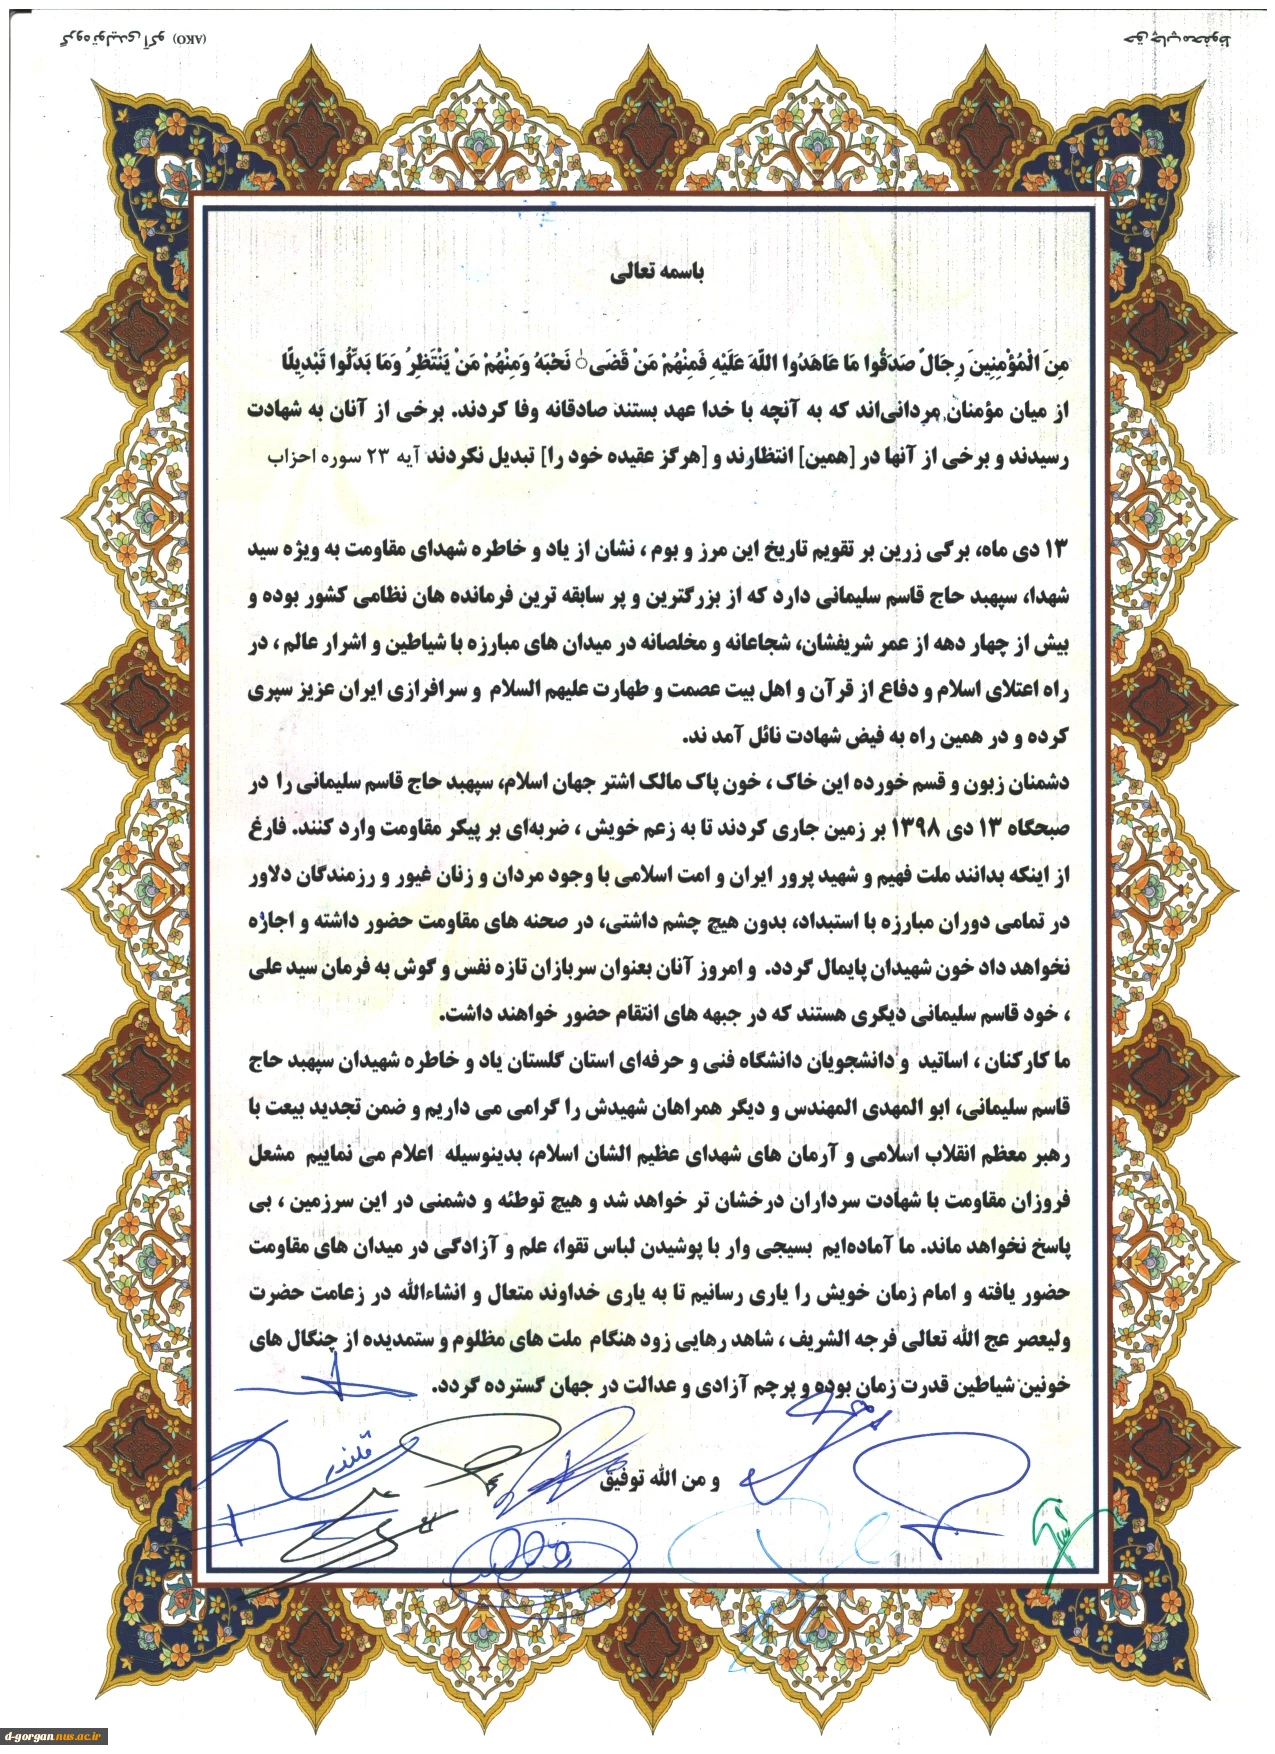 گروه تولیدی آکو (AKO)
حق چاپ محفوظ
باسمه تعالی
مِنَ الْمُؤْمِنِینَ رِجَالٌ صَدَقُوا مَا عَاهَدُوا اللَّهَ عَلَیْهِ فَمِنْهُمْ مَنْ قَضَىٰ نَحْبَهُ وَمِنْهُمْ مَنْ یَنْتَظِرُ وَمَا بَدَّلُوا تَبْدِیلًا
از میان مؤمنان مردانی‌اند که به آنچه با خدا عهد بستند صادقانه وفا کردند. برخی از آنان به شهادت
رسیدند و برخی از آنها در [همین] انتظارند و [هرگز عقیده خود را] تبدیل نکردند آیه ۲۳ سوره احزاب
۱۳ دی ماه، برگی زرین بر تقویم تاریخ این مرز و بوم ، نشان از یاد و خاطره شهدای مقاومت به ویژه سید
شهدا، سپهبد حاج قاسم سلیمانی دارد که از بزرگترین و پر سابقه ترین فرمانده هان نظامی کشور بوده و
بیش از چهار دهه از عمر شریفشان، شجاعانه و مخلصانه در میدان های مبارزه با شیاطین و اشرار عالم ، در
راه اعتلای اسلام و دفاع از قرآن و اهل بیت عصمت و طهارت علیهم السلام و سرافرازی ایران عزیز سپری
کرده و در همین راه به فیض شهادت نائل آمد ند.
دشمنان زبون و قسم خورده این خاک ، خون پاک مالک اشتر جهان اسلام، سپهبد حاج قاسم سلیمانی را در
صبحگاه ۱۳ دی ۱۳۹۸ بر زمین جاری کردند تا به زعم خویش ، ضربه‌ای بر پیکر مقاومت وارد کنند. فارغ
از اینکه بدانند ملت فهیم و شهید پرور ایران و امت اسلامی با وجود مردان و زنان غیور و رزمندگان دلاور
در تمامی دوران مبارزه با استبداد، بدون هیچ چشم داشتی، در صحنه های مقاومت حضور داشته و اجازه
نخواهد داد خون شهیدان پایمال گردد. و امروز آنان بعنوان سربازان تازه نفس و گوش به فرمان سید علی
، خود قاسم سلیمانی دیگری هستند که در جبهه های انتقام حضور خواهند داشت.
ما کارکنان ، اساتید و دانشجویان دانشگاه فنی و حرفه‌ای استان گلستان یاد و خاطره شهیدان سپهبد حاج
قاسم سلیمانی، ابو المهدی المهندس و دیگر همراهان شهیدش را گرامی می داریم و ضمن تجدید بیعت با
رهبر معظم انقلاب اسلامی و آرمان های شهدای عظیم الشان اسلام، بدینوسیله اعلام می نماییم مشعل
فروزان مقاومت با شهادت سرداران درخشان تر خواهد شد و هیچ توطئه و دشمنی در این سرزمین ، بی
پاسخ نخواهد ماند. ما آماده‌ایم بسیجی وار با پوشیدن لباس تقوا، علم و آزادگی در میدان های مقاومت
حضور یافته و امام زمان خویش را یاری رسانیم تا به یاری خداوند متعال و انشاءالله در زعامت حضرت
ولیعصر عج الله تعالی فرجه الشریف ، شاهد رهایی زود هنگام ملت های مظلوم و ستمدیده از چنگال های
خونین شیاطین قدرت زمان بوده و پرچم آزادی و عدالت در جهان گسترده گردد.
و من الله توفیق
قلندر
d-gorgan.nus.ac.ir